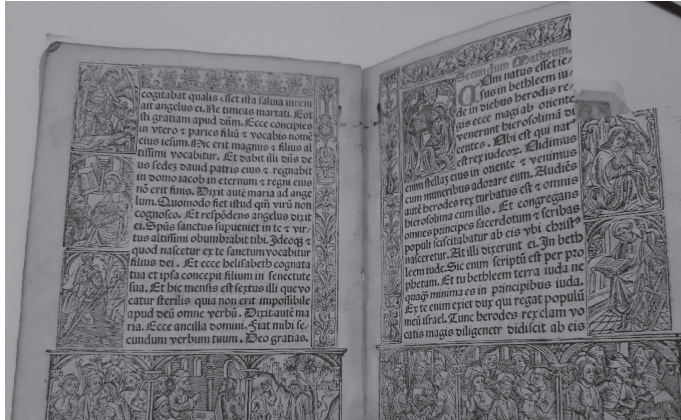 cogitabat qualis esset ista salutatio
ait angelus ei. Ne timeas maria. 
sti gratiam apud dñm. Ecce concipies
in vtero & paries filiũ & vocabis nomẽ
eius iesum. Hic erit magnus & filius al
tissimi vocabitur. Et dabit illi dñs de
us sedez dauid patris eius & regnabit
in domo iacob in eternum & regni eius
nõ erit finis. Dixit autẽ maria ad ange
lum. Quomodo fiet istud qm̃ virũ non
cognosco. Et respõdens angelus dixit
ei. Spũs sanctus supueniet in te & vir/
tus altissimi obumbrabit tibi. Ideoqz &
quod nascetur ex te sanctum vocabitur
filius dei. Et ecce helisabeth cognata
tua et ipsa concepit filium in senectute
sua. Et hic mensis est sextus illi que vo
catur sterilis quia non erit impossibile
apud deũ omne verbũ. Dixit autẽ ma
ria. Ecce ancilla domini. Fiat mihi se/
cundum verbum tuum. Deo gratias.
Secundum Matheum.
Cum natus esset ie/
sus in bethleem iu/
de in diebus herodis re/
gis ecce magi ab oriente
venerunt hierosolimã di
centes. Vbi est qui nat⁹
est rex iudeoꝝ. Vidimus
enim stellaz eius in oriente & venimus
cum muneribus adorare eum. Audiẽs
autẽ herodes rex turbatus est & omnis
hierosolima cum illo. Et congregans
omnes principes sacerdotum & scribas
populi sciscitabatur ab eis vbi christ⁹
nasceretur. At illi dixerunt ei. In beth
leem iude. Sic enim scriptũ est per pro
phetam. Et tu bethleem terra iuda ne
quaq̃ minima es in principibus iuda.
Ex te enim exiet dux qui regat populũ
meũ israel. Tunc herodes rex clam vo
catis magis diligenter didicit ab eis